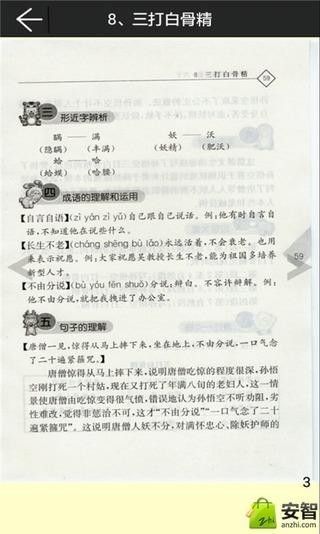 8、三打白骨精
8 三打白骨精
59
三 形近字辨析
瞒 —— 满 妖 —— 沃
(隐瞒) (丰满) (妖精) (肥沃)
蛤 —— 哈
(蛤蟆) (哈腰)
四 成语的理解和运用
【自言自语】(zì yán zì yǔ)自己跟自己说话。例:他有时自言自
语,不知道他在说些什么。
【长生不老】(cháng shēng bù lǎo)永远活着,不会衰老。也用
来表示祝愿。例:大家祝愿吴教授长生不老,能为祖国多培养
新型人才。
59
【不由分说】(bù yóu fēn shuō)分说:辩白。不容许辩解。例:
他不由分说,就把我拽进了办公室。
五 句子的理解
【唐僧一见,惊得从马上摔下来,坐在地上,不由分说,一口气念
了二十遍紧箍咒。】
唐僧惊得从马上摔下来,说明唐僧吃惊的程度很深,孙悟
空刚打死一个村姑,现在又打死了年满八旬的老妇人,这一情
景使唐僧由吃惊变得很气愤,错误地认为孙悟空不听劝阻,劣
性难改,觉得非惩治不可,这才“不由分说”“一口气念了二十
遍紧箍咒”。这说明唐僧人妖不分,对满怀忠心、除妖护师的
3
安智
anzhi.com